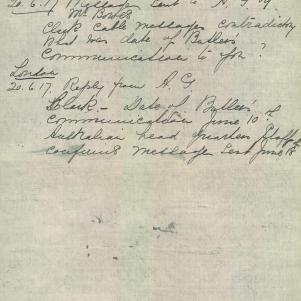 20.6.17 Message sent to A. G.
Mr Bowles
Clerk cable messages contradictory
What was date of Butlers
Communication to you?
London
20.6.17. Reply from A. G.
Clerk – Date of Butlers
communication June 10th
Australian head quarters Staff
confirms message sent June 18